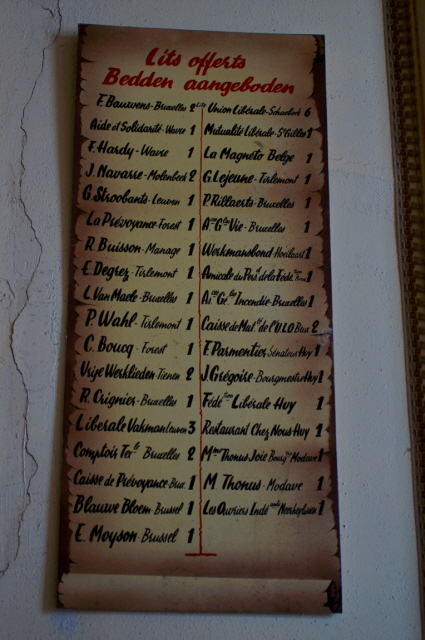 Lits offerts
Bedden aangeboden
F. Bauwens - Bruxelles 2 Lits
Aide et Solidarité - Wavre 1
F. Hardy - Wavre 1
J. Navarre - Molenbeek 2
G. Stroobants - Leuven 1
La Prévoyance Forest 1
R. Buisson - Manage 1
E. Degrez - Tirlemont 1
L. Van Maele - Bruxelles 1
P. Wahl - Tirlemont 1
C. Boucq - Forest 1
Vrije Werklieden Tienen 2
R. Crignier - Bruxelles 1
Liberale Vakman Leuven 3
Comptoir Ter.le Bruxelles 2
Caisse de Prévoyance Brux. 1
Blauwe Bloem - Brussel 1
E. Moyson - Brussel 1
Union Libérale - Schaerbeek 6
Mutualité Libérale - St Gilles 1
La Magnéto Belge 1
G. Lejeune - Tirlemont 1
P. Rillaerts - Bruxelles 1
Gle Vie - Bruxelles 1
Werkmansbond - 1
Amicale du Pers.l de la Féd. 1
Incendie - Bruxelles 1
Caisse de Mut. de l'U.L.O Brux. 2
F. Parmentier Sénateur Huy 1
J. Grégoire - Bourgmestre Huy 1
Féd.tion Libérale Huy 1
Restaurant Chez Nous Huy 1
Mme Thonus Joie Bourg. Modave 1
M. Thonus - Modave 1
Les Ouvriers Indé 1